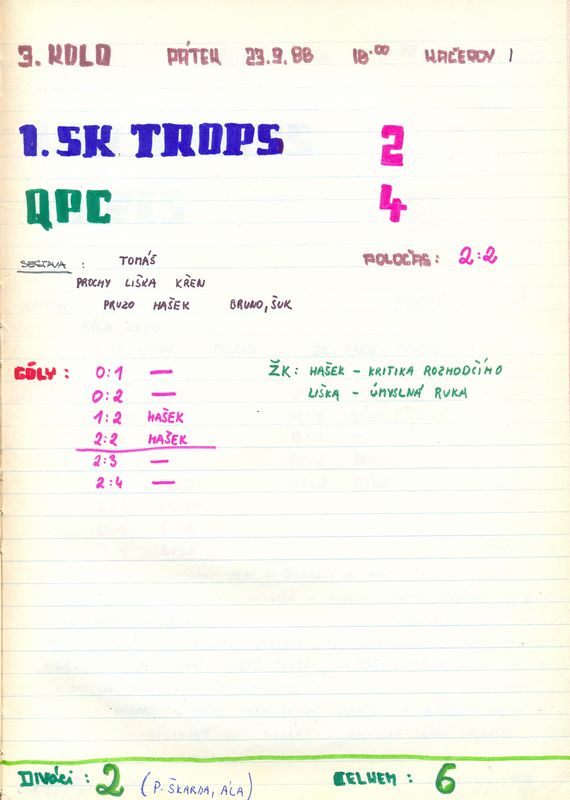 3. KOLO PÁTEK 23.9.88 18.00 KAČEROV 1
1. SK TROPS 2
QPC 4
SESTAVA : TOMÁŠ POLOČAS: 2:2
PROCHY LIŠKA KŘEN
PRUZO HAŠEK BRUNO, ŠUK
GÓLY : 0:1 — ŽK: HAŠEK - KRITIKA ROZHODČÍHO
0:2 — LIŠKA - ÚMYSLNÁ RUKA
1:2 HAŠEK
2:2 HAŠEK
2:3 —
2:4 —
DIVÁCI : 2 (P. ŠKARDA, ÁLA) CELKEM : 6